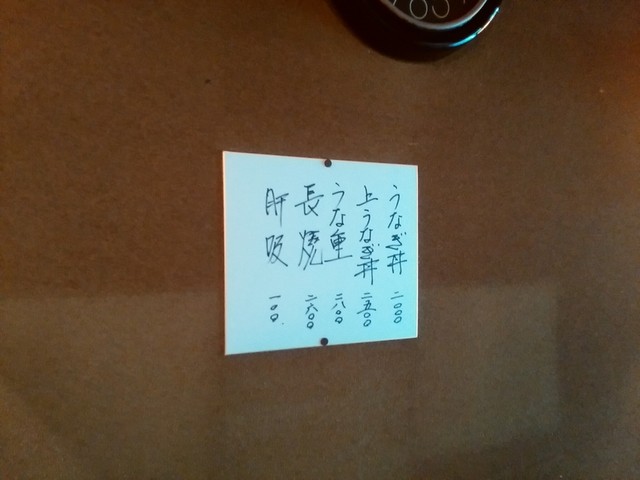 うなぎ丼 二〇〇〇
上うなぎ丼 二五〇〇
うな重 二八〇〇
長焼 二六〇〇
肝吸 一〇〇